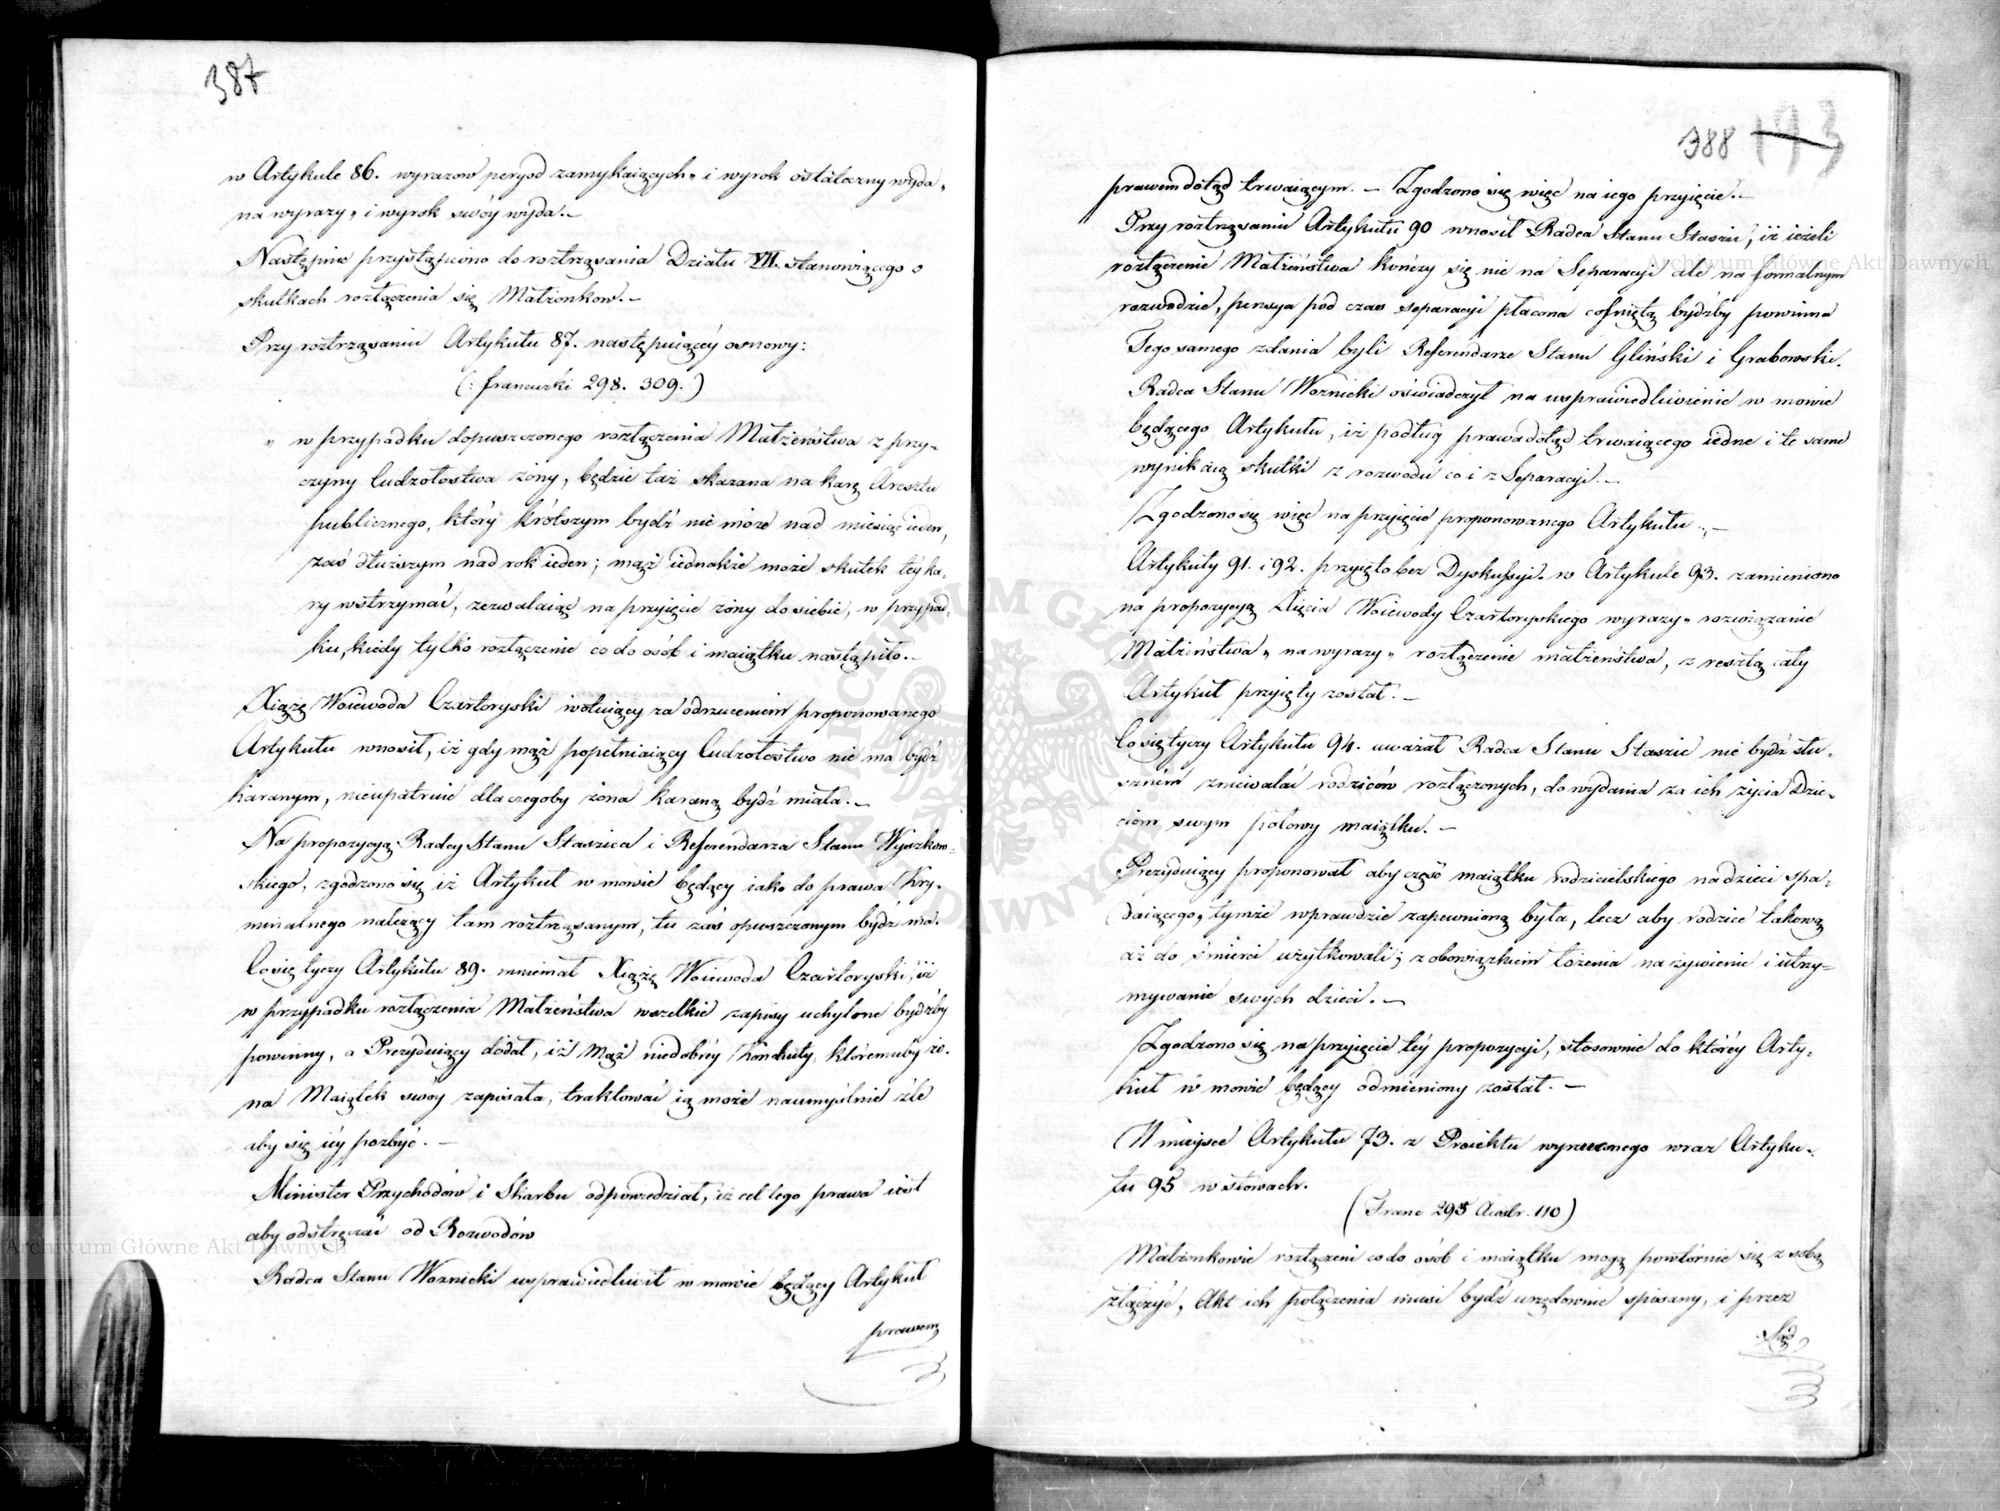 387
w Artykule 86. wyrazow peryod zamykaiących „ i wyrok ostateczny wyda „
na wyrazy „ i wyrok swóy wyda. –
Następnie przystąpiono do roztrząsania Działu VII. stanowiącego o
skutkach rozłączenia się Małżonkow. –
Przy roztrząsaniu Artykułu 87. następuiącéy osnowy:
(: francuzki 298. 309. )
„ w przypadku dopuszczonego rozłączenia Małżeństwa z przy-
czyny Cudzołostwa żony, będzie taż skazana na karę Aresztu
publicznego, który krótszym bydź nie może nad miesiąc ieden,
zaś dłuższym nad rok ieden; mąż iednakże może skutek téy ka-
ry wstrzymać, zezwalaiąc na przyięcie żony do siebie, w przypad-
ku, kiedy tylko rozłączenie co do osób i maiątku nastąpiło. –
Xiążę Woiewoda Czartoryski wotuiący za odrzuceniem proponowanego
Artykułu wnosił, iż gdy mąż popełniaiący Cudzołostwo nie ma bydź
karanym, nieupatruie dla czegoby żona karaną bydź miała. –
Na propozycyą Radcy Stanu Staszica i Referendarza Stanu Wyszkow-
skiego, zgodzono się iż Artykuł w mowie będący iako do prawa Kry-
minalnego należący tam roztrząsanym, tu zaś opuszczonym bydź ma.
Co się tyczy Artykułu 89. mniemał Xiążę Woiewoda Czartoryski, iż
w przypadku rozłączenia Małżeństwa wszelkie zapisy uchylone bydźby
powinny, a Prezyduiący dodał, iż Mąż niedobréy Konduity, któremuby żo-
na Maiątek swóy zapisała, traktować ią może naumyślnie źle
aby się iéy pozbyć. –
Minister Przychodów i Skarbu odpowiedział, iż cel tego prawa iest
aby odstręczać od Rozwodów
Radca Stanu Woznicki usprawiedliwił w mowie będący Artykuł
prawem
388 193
prawem dotąd trwaiącym. – Zgodzono się więc na iego przyięcie. –
Przy roztrząsaniu Artykułu 90 wnosił Radca Stanu Staszic, iż ieżeli
rozłączenie Małżeństwa kończy się nie na Separacyi ale na formalnym
rozwodzie, pensya pod czas separacyi płacona cofniętą bydźby powinna
Tego samego zdania byli Referendarze Stanu Gliński i Grabowski.
Radca Stanu Woznicki oświadczył na usprawiedliwienie w mowie
będącego Artykułu, iż podług prawa dotąd trwaiącego iedne i te same
wynikaią skutki z rozwodu co i z Separacyi. –
Zgodzono się więc na przyięcie proponowanego Artykułu. –
Artykuły 91. i 92. przyięto bez Dyskussyi. w Artykule 93. zamieniono
na propozycyą Xięcia Woiewody Czartoryskiego wyrazy „ rozwiązanie
Małżeństwa „ na wyrazy „ rozłączenie małżeństwa, z resztą cały
Artykuł przyięty został. –
Co się tyczy Artykułu 94. uważał Radca Stanu Staszic nie bydź słu-
szném zniewalać rodziców rozłączonych, do wydania za ich życia Dzie-
ciom swym połowy maiątku. –
Prezyduiący proponował aby część maiątku rodzicielskiego na dzieci spa-
daiącego, tymże wprawdzie zapewnioną była, lecz aby rodzice takową
aż do śmierci użytkowali; z obowiązkiem łożenia na żywienie i utrzy-
mywanie swych dzieci. –
Zgodzono się na przyięcie téy propozycyi, stosownie do któréy Arty-
kuł w mowie będący odmieniony został. –
W mieysce Artykułu 73. z Proiektu wyrzuconego wraz Artyku-
łu 95 w słowach.
(Franc 295 110)
Małżonkowie rozłączeni co do osób i maiątku mogą powtórnie się z sobą
złączyć, Akt ich połączenia musi bydź urzędownie spisany, i przez
Sąd
Archiwum Główne Akt Dawnych
Archiwum Główne Akt Dawnych
ARCHIWUM GŁÓWNE AKT DAWNYCH